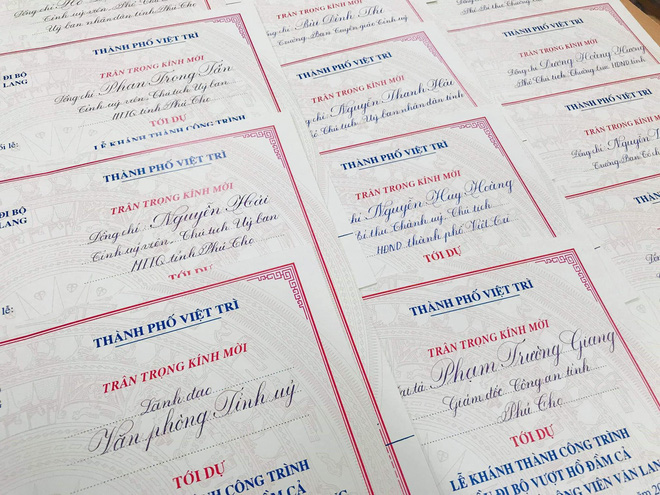 THÀNH PHỐ VIỆT TRÌ
TRÂN TRỌNG KÍNH MỜI
Đồng chí Phan Trọng Tấn
Tỉnh uỷ viên, Chủ tịch Uỷ ban
MTTQ tỉnh Phú Thọ
LỄ KHÁNH THÀNH CÔNG TRÌNH
ĐI BỘ
LANG
chí Bùi Đình Thi
Trưởng Ban Tuyên giáo Tỉnh uỷ
THÀNH PHỐ VIỆT TRÌ
TRÂN TRỌNG KÍNH MỜI
Nguyễn Thanh Hải
Chủ tịch Uỷ ban nhân dân tỉnh
THÀNH PHỐ VIỆT TRÌ
TRÂN TRỌNG KÍNH MỜI
Đồng chí Dương Hoàng Hương
Phó Chủ tịch Thường trực HĐND tỉnh
THÀNH PHỐ VIỆT TRÌ
TRÂN TRỌNG KÍNH MỜI
Đồng chí Nguyễn
Trưởng Ban
THÀNH PHỐ VIỆT TRÌ
TRÂN TRỌNG KÍNH MỜI
Đồng chí Nguyễn Hải
Tỉnh uỷ viên, Chủ tịch Uỷ ban
MTTQ tỉnh Phú Thọ
TỚI DỰ
ĐI BỘ
LANG
lễ:
THÀNH PHỐ VIỆT TRÌ
TRÂN TRỌNG KÍNH MỜI
chí Nguyễn Huy Hoàng
Bí thư Thành uỷ, Chủ tịch
HĐND thành phố Việt Trì
TỚI DỰ
THÀNH PHỐ VIỆT TRÌ
TRÂN TRỌNG KÍNH MỜI
Lãnh đạo
Văn phòng Tỉnh uỷ
TỚI DỰ
LỄ KHÁNH THÀNH CÔNG TRÌNH
ĐI BỘ VƯỢT HỒ ĐẦM CẢ
CÔNG VIÊN VĂN LANG
THÀNH PHỐ VIỆT TRÌ
TRÂN TRỌNG KÍNH MỜI
Đại tá Phạm Trường Giang
Giám đốc Công an tỉnh
Phú Thọ
TỚI DỰ
LỄ KHÁNH THÀNH CÔNG TRÌNH
ĐI BỘ VƯỢT HỒ ĐẦM CẢ
CÔNG VIÊN VĂN LANG